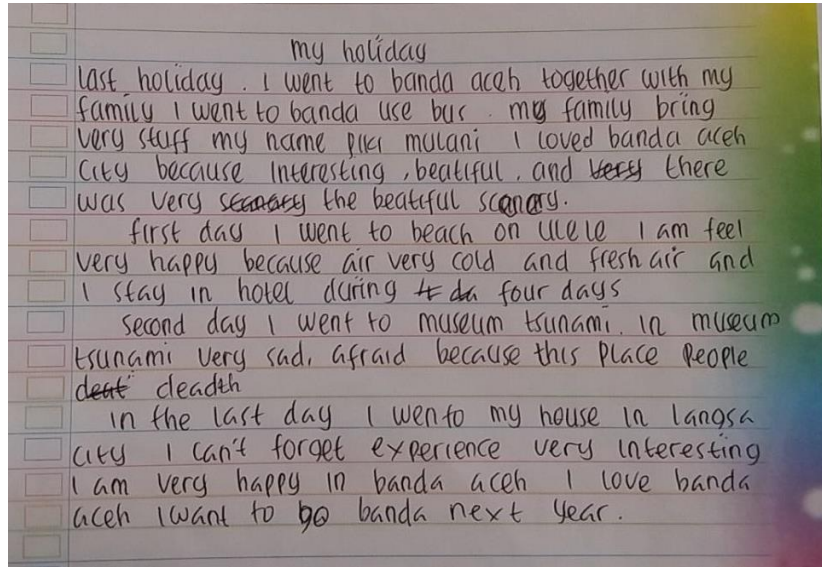 my holiday
last holiday. I went to banda aceh together with my
family I went to banda use bus. my family bring
very stuff my name piki mulani I loved banda aceh
city because interesting, beatiful, and very there
was very scenary the beatiful scenary.
first day I went to beach on ulele I am feel
very happy because air very cold and fresh air and
I stay in hotel during four days
second day I went to museum tsunami. in museum
tsunami very sad, afraid because this place people
deat deadth
in the last day I wento my house in langsa
city I can't forget experience very interesting
I am very happy in banda aceh I love banda
aceh I want to go banda next year.